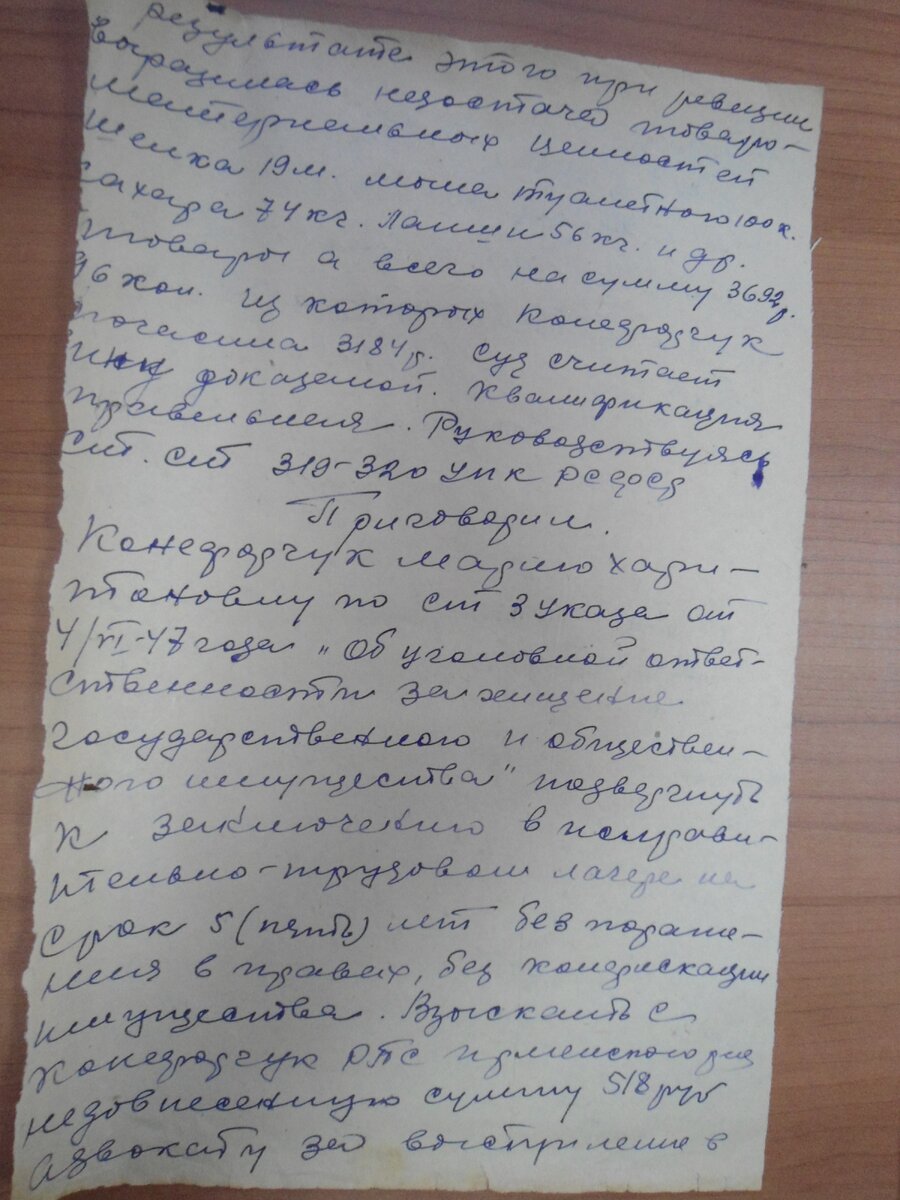 результате этого при ревизии
выразилась недостачей товаро-
материальных ценностей
шелка 19 м. мыла туалетного 100 к.
сахара 74 кг. лапши 56 кг. и др.
товары а всего на сумму 3692 р.
96 коп. из которых Кондрадчук
погасила 3184 р. Суд считает
доказаной. Квалификация
правельная. Руководствуясь
ст. ст 319-320 УПК РСФСР
Приговорил.
Кондрадчук Марию Хари-
тоновну по ст 3 Указа от
4/VI-47 года „Об уголовной ответ-
ственности за хищение
государственного и обществен-
ного имущества" подвергнуть
к заключению в исправи-
тельно-трудовом лагере на
срок 5 (пять) лет без пораже-
ния в правах, без конфискации
имущества. Взыскать с
Кондрадчук РПС
сумму 518 руб
адвокату за выступление в